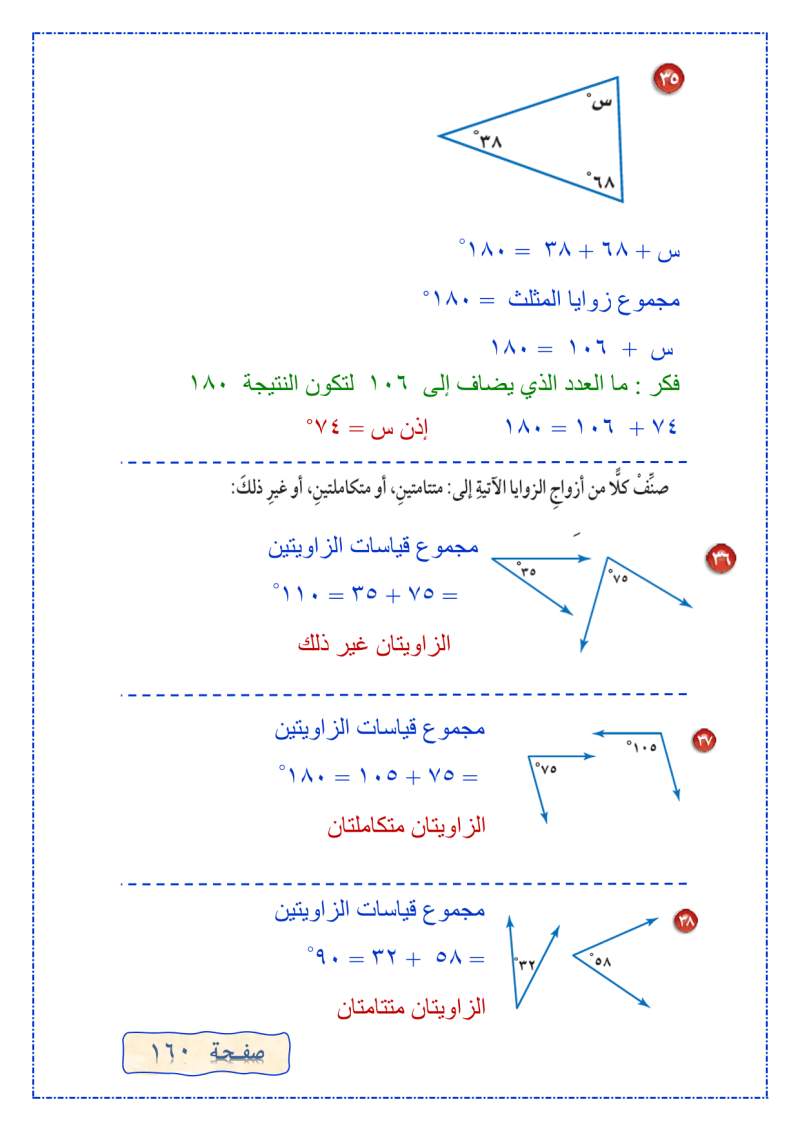 ٣٥
س°
٣٨°
٦٨°
س + ٦٨ + ٣٨ = ١٨٠°
مجموع زوايا المثلث = ١٨٠°
س + ١٠٦ = ١٨٠
فكر : ما العدد الذي يضاف إلى ١٠٦ لتكون النتيجة ١٨٠
٧٤ + ١٠٦ = ١٨٠ إذن س = ٧٤°
صنِّفْ كلًّا من أزواجِ الزوايا الآتيةِ إلى: متتامتينِ، أو متكاملتينِ، أو غيرِ ذلكَ:
٣٦
٧٥°
٣٥°
مجموع قياسات الزاويتين
= ٧٥ + ٣٥ = ١١٠°
الزاويتان غير ذلك
٣٧
١٠٥°
٧٥°
مجموع قياسات الزاويتين
= ٧٥ + ١٠٥ = ١٨٠°
الزاويتان متكاملتان
٣٨
٥٨°
٣٢°
مجموع قياسات الزاويتين
= ٥٨ + ٣٢ = ٩٠°
الزاويتان متتامتان
صفحة ١٦٠